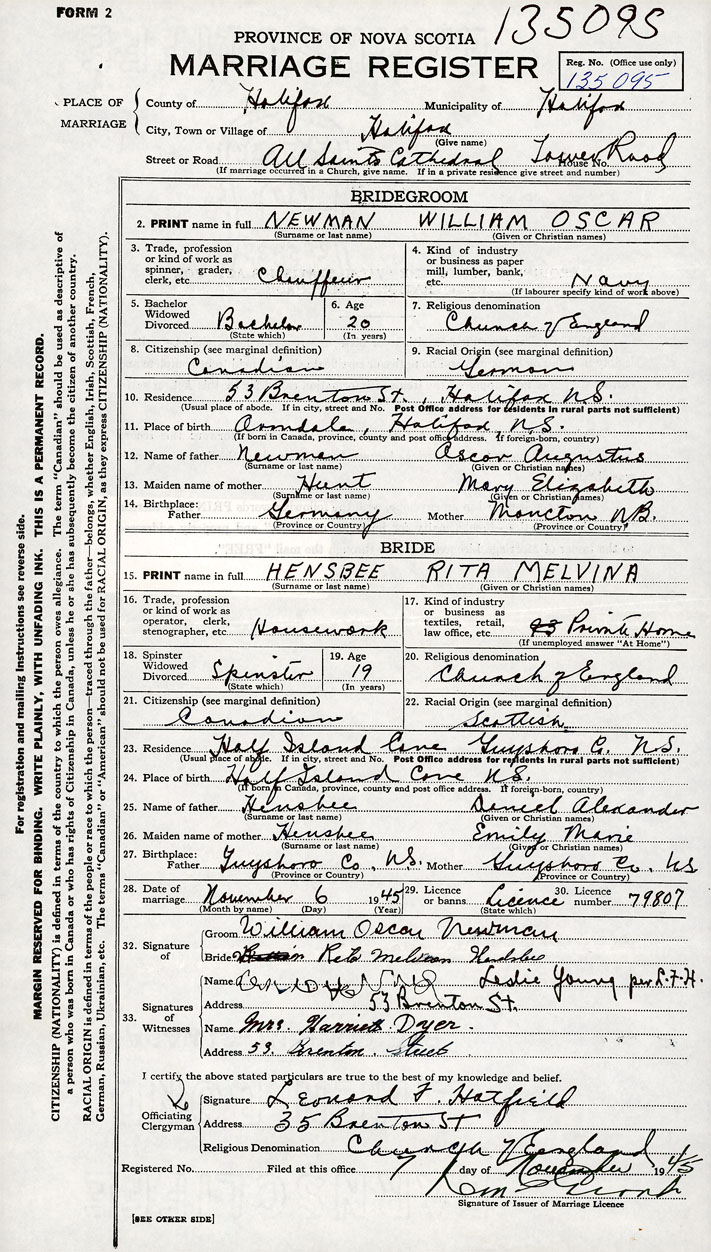 FORM 2
135095
PROVINCE OF NOVA SCOTIA
MARRIAGE REGISTER
Reg. No. (Office use only)
135095
PLACE OF MARRIAGE
County of Halifax Municipality of Halifax
City, Town or Village of Halifax
(Give name)
Street or Road All Saints Cathedral Tower Road House No.
(If marriage occurred in a Church, give name. If in a private residence give street and number)
BRIDEGROOM
2. PRINT name in full NEWMAN WILLIAM OSCAR
(Surname or last name) (Given or Christian names)
3. Trade, profession or kind of work as spinner, grader, clerk, etc. Chauffeur
4. Kind of industry or business as paper mill, lumber, bank, etc. Navy
(If labourer specify kind of work above)
5. Bachelor Widowed Divorced Bachelor
(State which)
6. Age 20
(In years)
7. Religious denomination Church of England
8. Citizenship (see marginal definition) Canadian
9. Racial Origin (see marginal definition) German
10. Residence 53 Brenton St., Halifax N.S.
(Usual place of abode. If in city, street and No. Post Office address for residents in rural parts not sufficient)
11. Place of birth Armdale, Halifax, N.S.
(If born in Canada, province, county and post office address. If foreign-born, country)
12. Name of father Newman Oscar Augustus
(Surname or last name) (Given or Christian names)
13. Maiden name of mother Hunt Mary Elizabeth
(Surname or last name) (Given or Christian names)
14. Birthplace: Father Germany Mother Moncton N.B.
(Province or Country) (Province or Country)
BRIDE
15. PRINT name in full HENSBEE RITA MELVINA
(Surname or last name) (Given or Christian names)
16. Trade, profession or kind of work as operator, clerk, stenographer, etc. Housework
17. Kind of industry or business as textiles, retail, law office, etc. Private Home
(If unemployed answer "At Home")
18. Spinster Widowed Divorced Spinster
(State which)
19. Age 19
(In years)
20. Religious denomination Church of England
21. Citizenship (see marginal definition) Canadian
22. Racial Origin (see marginal definition) Scottish
23. Residence Half Island Cove Guysboro Co. N.S.
(Usual place of abode. If in city, street and No. Post Office address for residents in rural parts not sufficient)
24. Place of birth Half Island Cove N.S.
(If born in Canada, province, county and post office address. If foreign-born, country)
25. Name of father Hensbee Daniel Alexander
(Surname or last name) (Given or Christian names)
26. Maiden name of mother Hensbee Emily Marie
(Surname or last name) (Given or Christian names)
27. Birthplace: Father Guysboro Co. N.S. Mother Guysboro Co. N.S.
(Province or Country) (Province or Country)
28. Date of marriage November 6 1945
(Month by name) (Day) (Year)
29. Licence or banns Licence
(State which)
30. Licence number 79807
32. Signature of
Groom William Oscar Newman
Bride Rita Melvina
33. Signatures of Witnesses
Name Leslie Young per L.F.H.
Address 53 Brenton St.
Name Mrs. Harriett Dyer.
Address 53. Brenton. Street
I certify the above stated particulars are true to the best of my knowledge and belief.
Officiating Clergyman
Signature Leonard F. Hatfield
Address 35 Brenton St
Religious Denomination Church of England
Registered No. Filed at this office 7 day of November 1945
Signature of Issuer of Marriage Licence
[SEE OTHER SIDE]
For registration and mailing Instructions see reverse side.
MARGIN RESERVED FOR BINDING. WRITE PLAINLY, WITH UNFADING INK. THIS IS A PERMANENT RECORD.
CITIZENSHIP (NATIONALITY) is defined in terms of the country to which the person owes allegiance. The term "Canadian" should be used as descriptive of
a person who was born in Canada or who has rights of Citizenship in Canada, unless he or she has subsequently become the citizen of another country.
RACIAL ORIGIN is defined in terms of the people or race to which the person—traced through the father—belongs, whether English, Irish, Scottish, French,
German, Russian, Ukrainian, etc. The terms "Canadian" or "American" should not be used for RACIAL ORIGIN, as they express CITIZENSHIP (NATIONALITY).